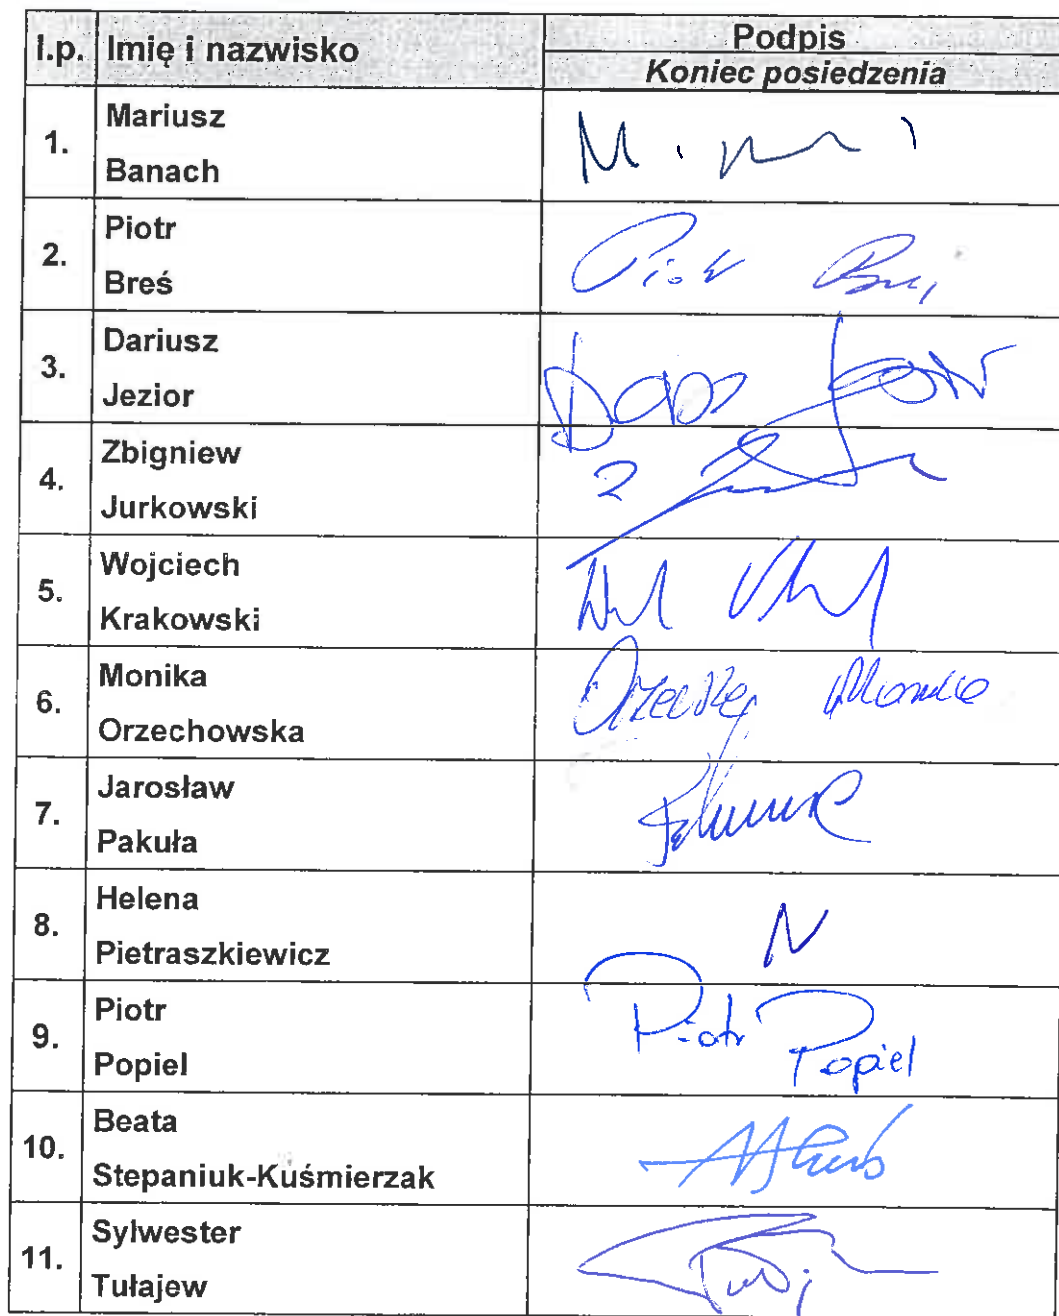 l.p. Imię i nazwisko Podpis
Koniec posiedzenia
1. Mariusz
Banach
2. Piotr
Breś
Piotr
3. Dariusz
Jezior
4. Zbigniew
Jurkowski
5. Wojciech
Krakowski
6. Monika
Orzechowska
Monika
7. Jarosław
Pakuła
8. Helena
Pietraszkiewicz
N
9. Piotr
Popiel
Piotr Popiel
10. Beata
Stepaniuk-Kuśmierzak
11. Sylwester
Tułajew